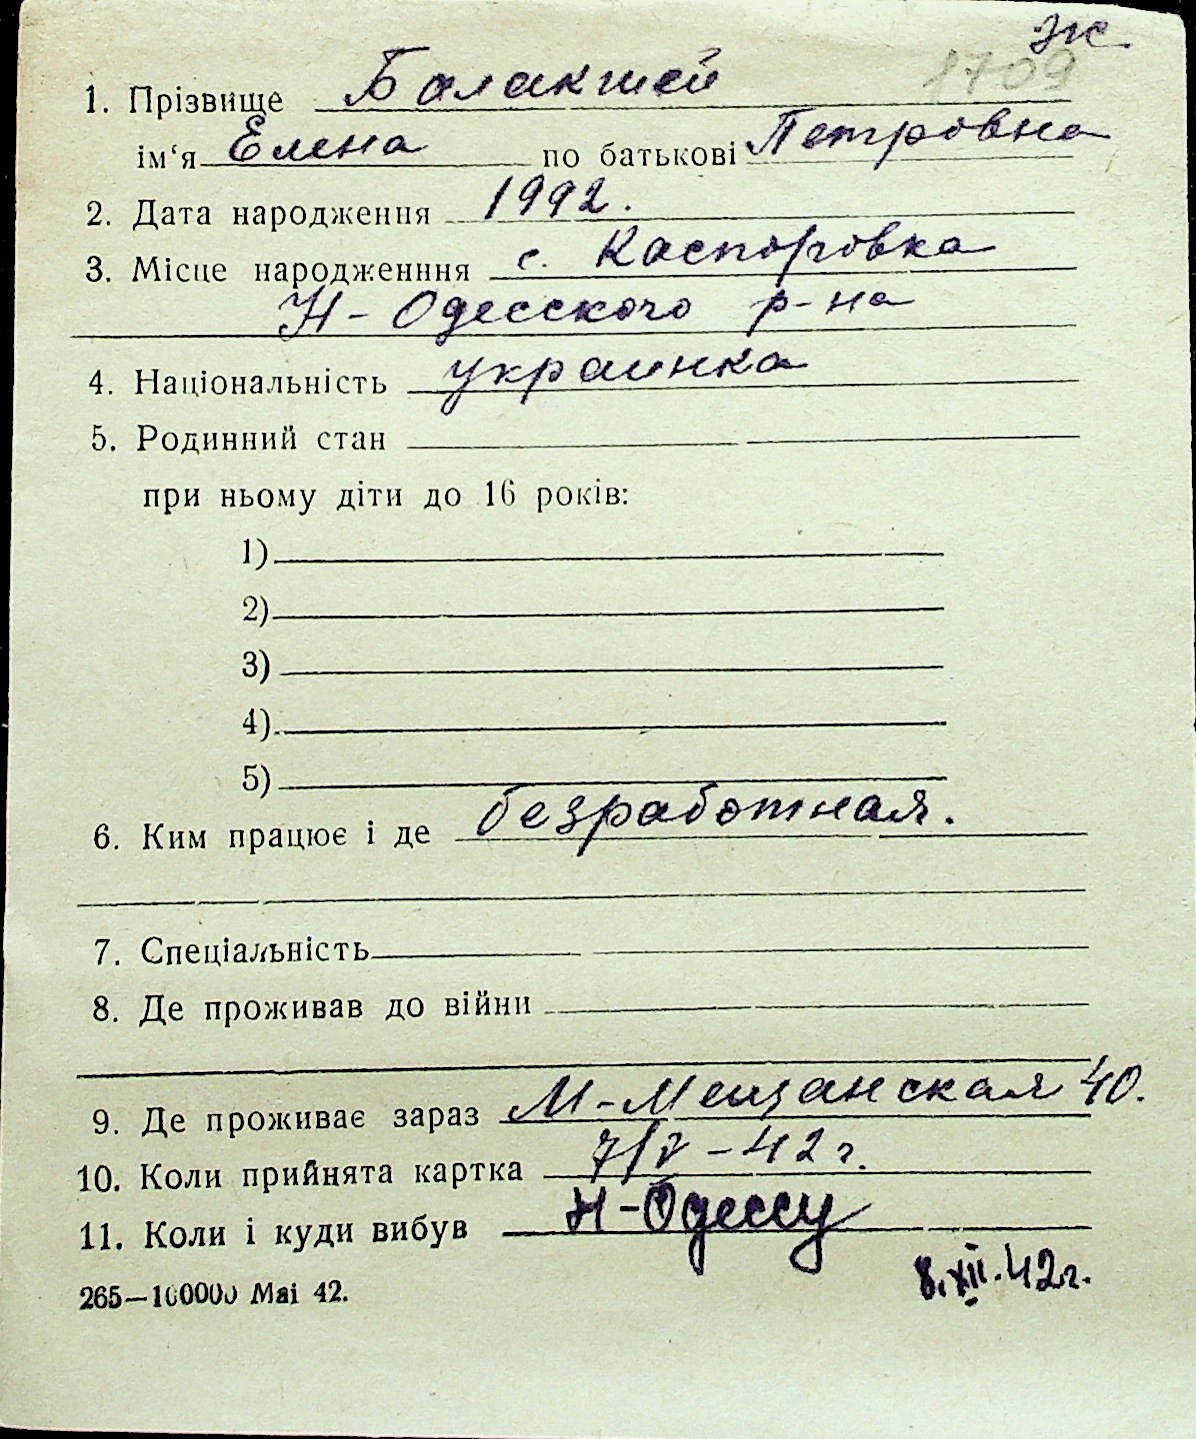 ж.
1709
1. Прізвище Балакшей
ім‘я Елена по батькові Петровна
2. Дата народження 1992.
3. Місце народженння с. Каспоровка
Н-Одесского р-на
4. Національність украинка
5. Родинний стан
при ньому діти до 16 років:
1)
2)
3)
4)
5)
6. Ким працює і де безработная.
7. Спеціальність
8. Де проживав до війни
9. Де проживає зараз М-Мещанская 40.
10. Коли прийнята картка 7/V-42 г.
11. Коли і куди вибув Н-Одессу
8.XII.42г.
265—100000 Маі 42.